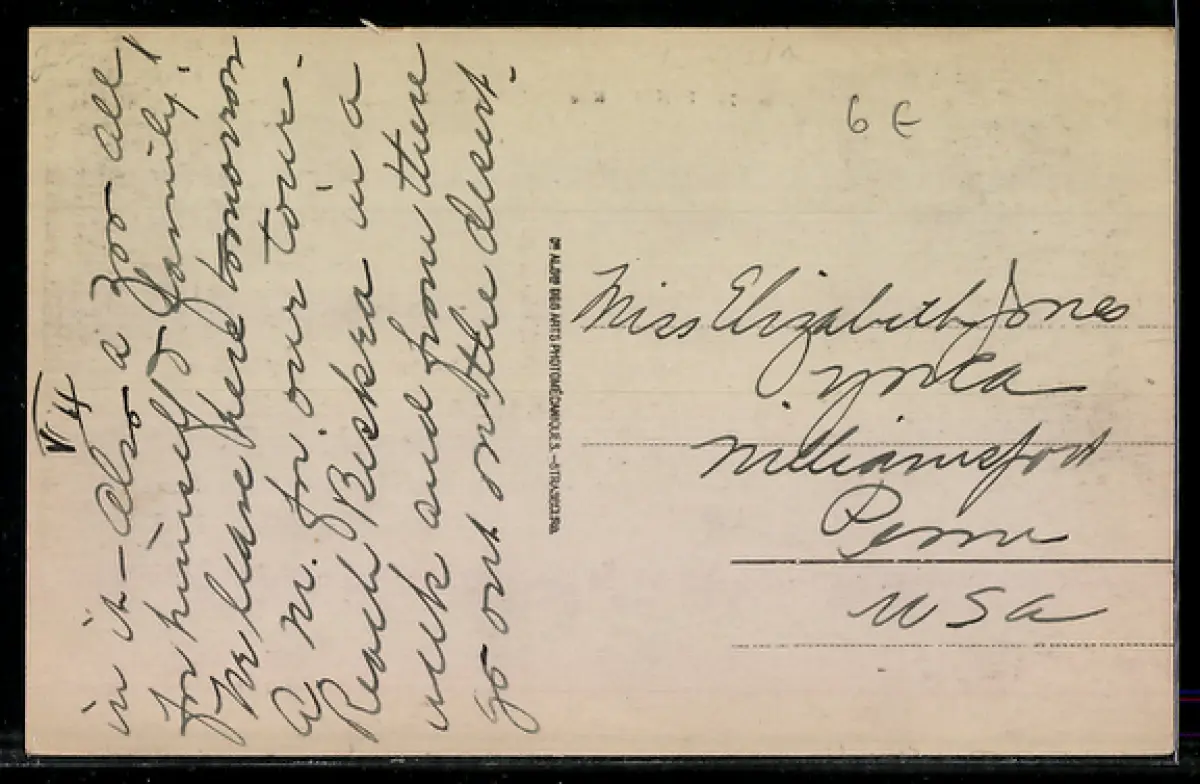 V 4
in it - Also a Zoo all
for himself & family!
We leave here tomorrow
A M. for our tour.
Reach Biskra in a
week and from there
go out on the desert.
Cie ALSNE DES ARTS PHOTOMÉCANIQUES. - STRASBOURG
6 E
Miss Elizabeth Jones
Williamsport
Penn
USA